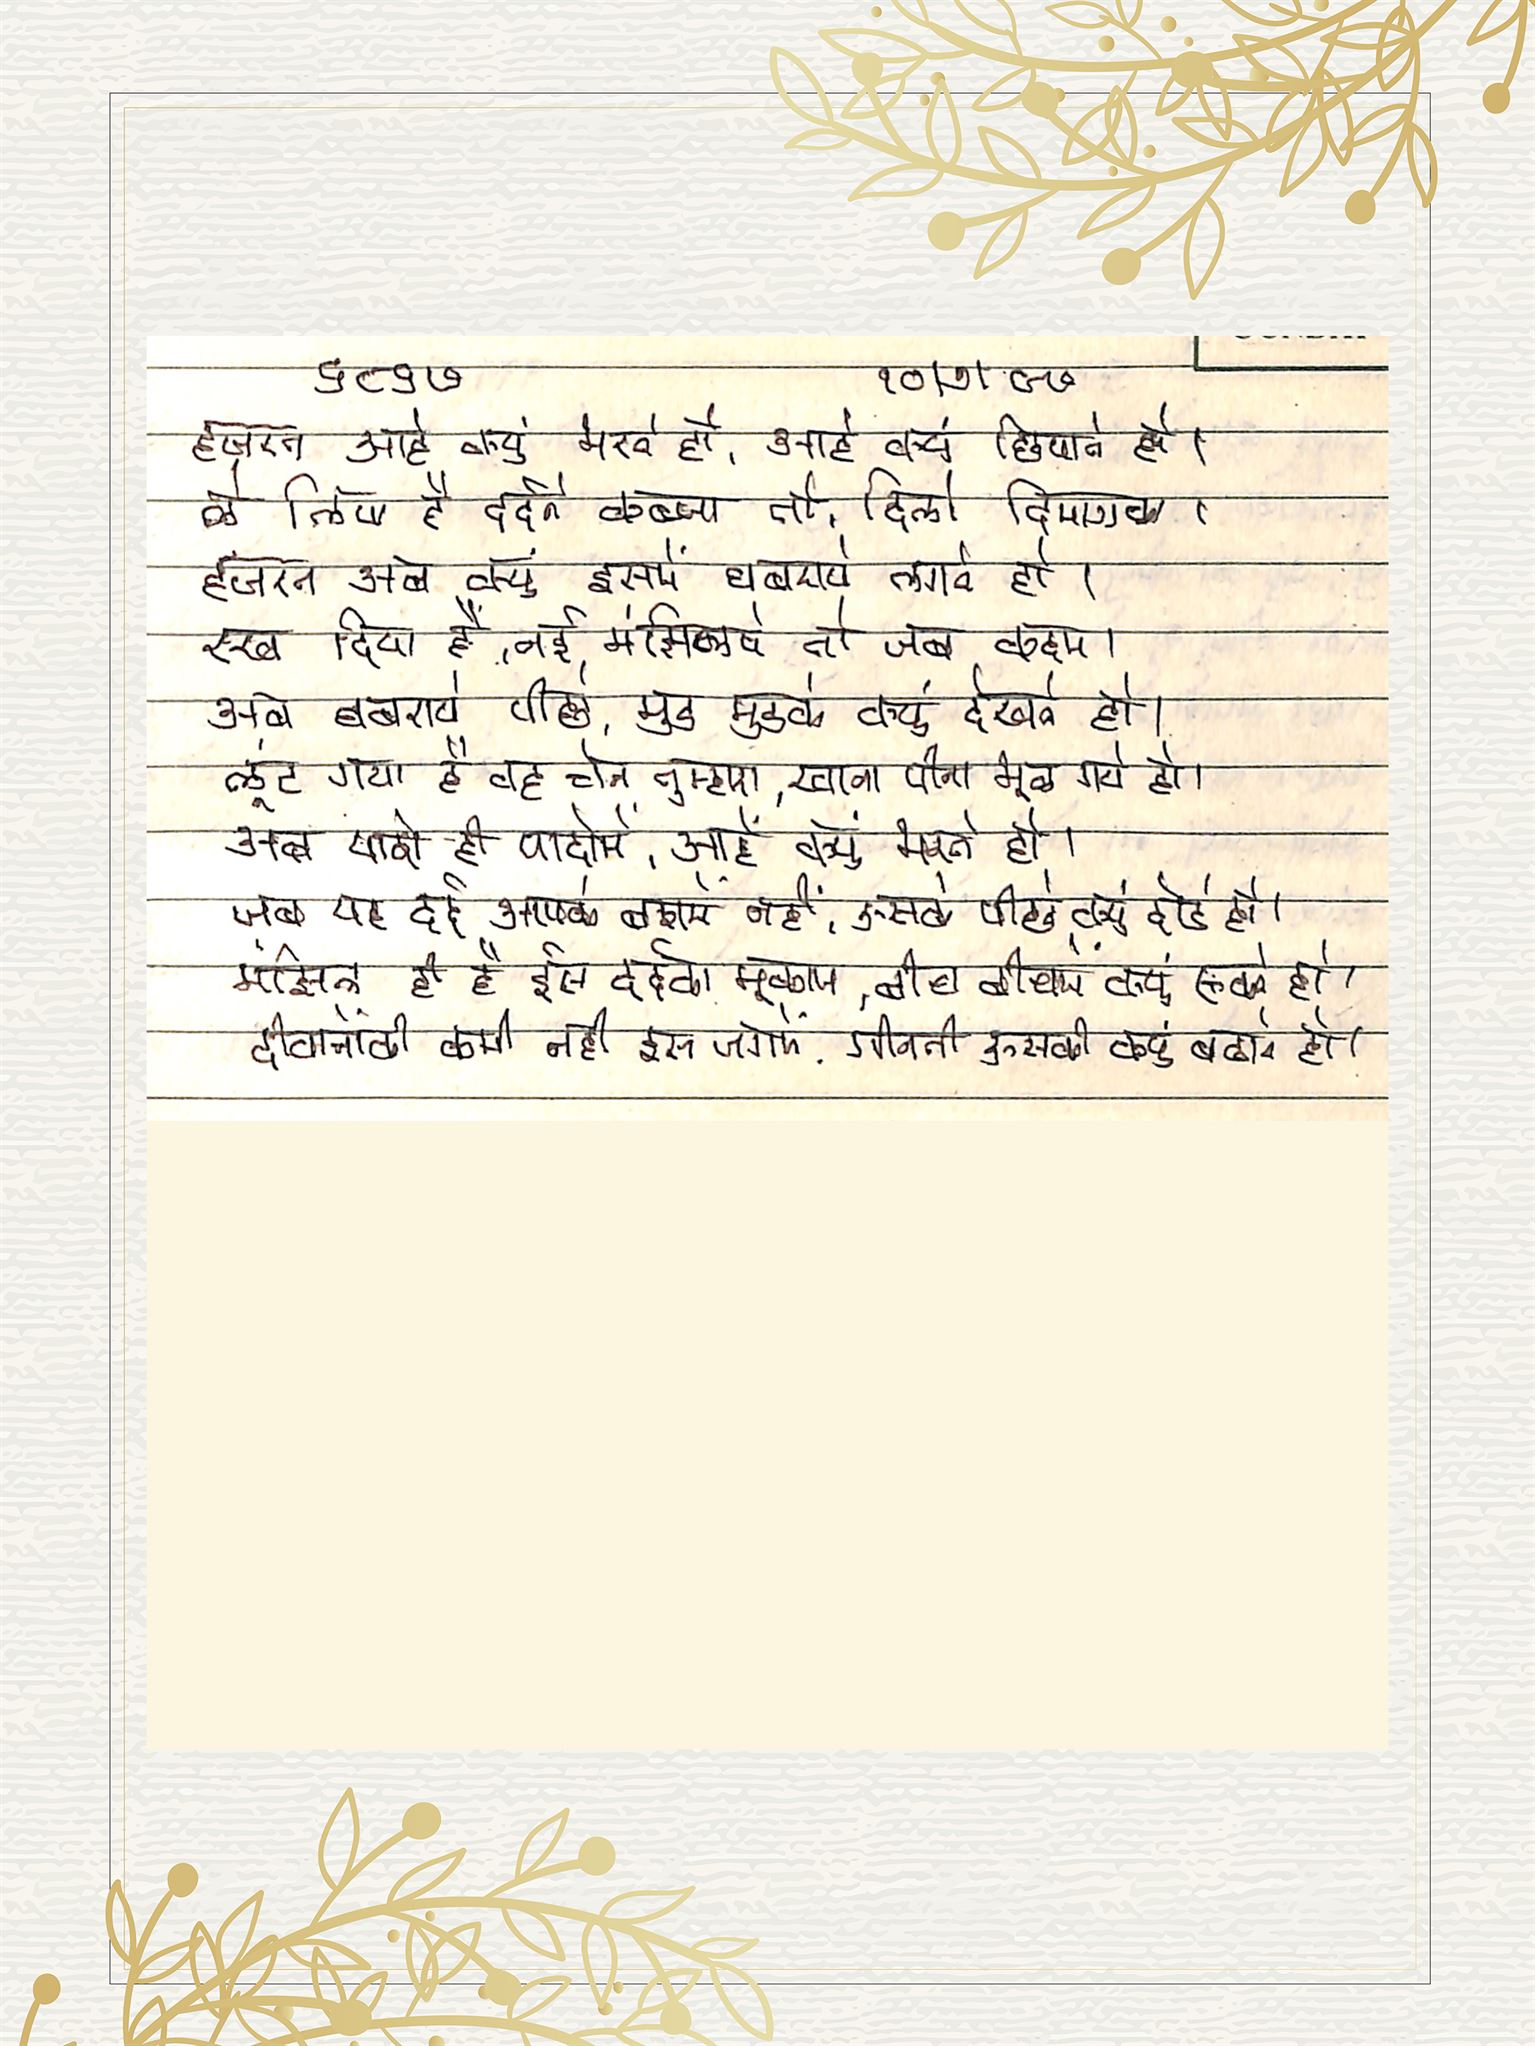 ५८५७ १०/७/८७
हजरत आहे क्युं भरते हो, आहे क्युं छिपाते हो।
ले लिया है दर्दने कब्जा तो, दिलो दिमागका।
हजरत अब क्युं इसमें घबराये लगते हो।
रख दिया है, नई मंझिलपे तो जब कदम।
अब घबराये पीछे, मुड मुडके क्युं देखते हो।
लूंट गया है वह चेन तुम्हारा, खाना पीना भूल गये हो।
अब यारो ही यादोमें, आहें क्युं भरते हो।
जब यह दर्द आपके बसमें नहीं, उसके पीछे क्युं दोडे हो।
मंझिल ही है ईस दर्दका मूकाम, बीच बीचमें क्युं रूकते हो।
दीवानोंकी कमी नही इस जगमें, गीनती उसकी क्युं बढाते हो।